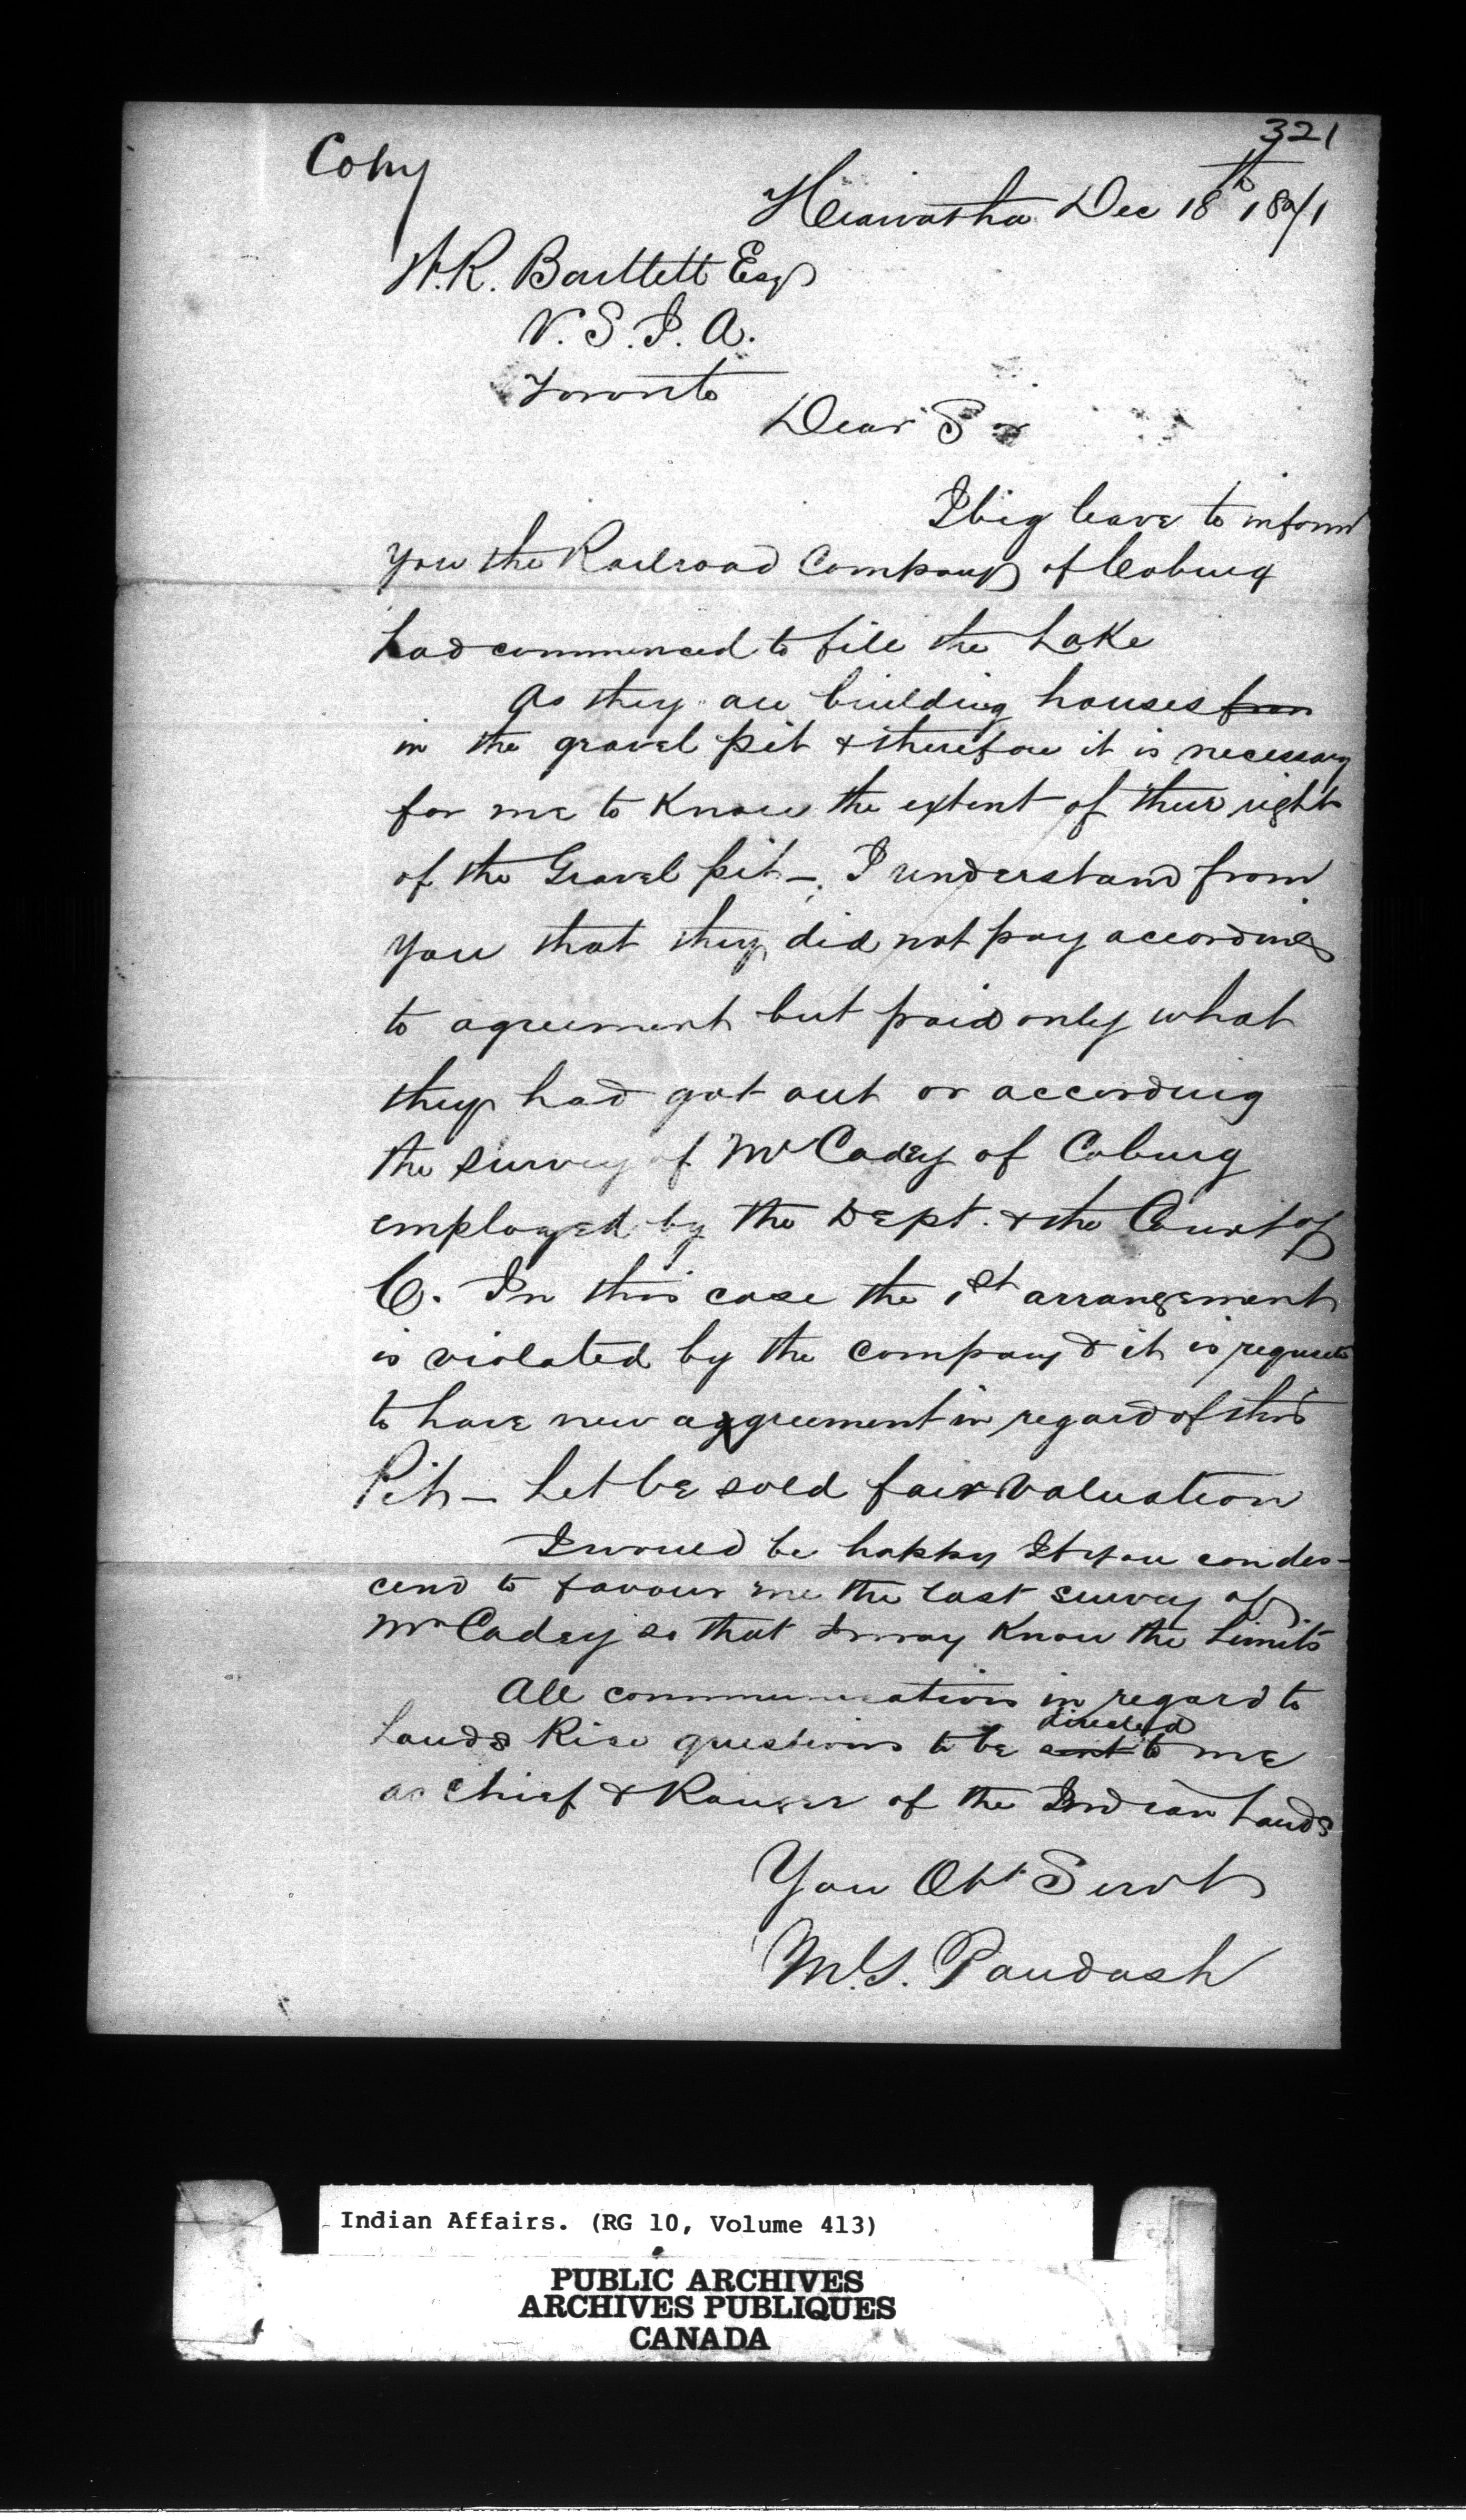 321
Copy
Hiawatha Dec 18th 1871
W.R. Bartlett Esq
V.S.I.A.
Toronto
Dear Sir
I beg leave to inform
you the Railroad Company of Cobourg
had commenced to fill the Lake
As they are building houses from
in the gravel pit & therefore it is necessary
for me to know the extent of their right
of the Gravel pit – I understand from
you that they did not pay according
to agreement but paid only what
they had got out or according
the survey of Mr Cadey of Coburg
employed by the Dept. & the Court of
C. In this case the 1st arrangement
is violated by the company & it is requisite
to have new aggreement in regard of this
Pit – Let be sold fair valuation
I would be happy If you condes-
cend to favour me the last survey of
Mr Cadey so that I may know the Limits
All communications in regard to
directed
Lands Rice questions to be sent to me
as Chief & Ranger of the Indian Lands
You Obt Servt
M.G. Paudash
Indian Affairs. (RG 10, Volume 413)
PUBLIC ARCHIVES
ARCHIVES PUBLIQUES
CANADA